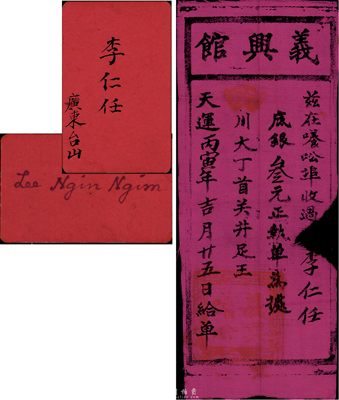 李仁任
廣東台山
Lee Ngin Ngim
館興義
茲在喼吆埠收過 李仁任
底銀叁元正執單為據
川大丁首关井足王
天運丙寅年吉月廿五日給单